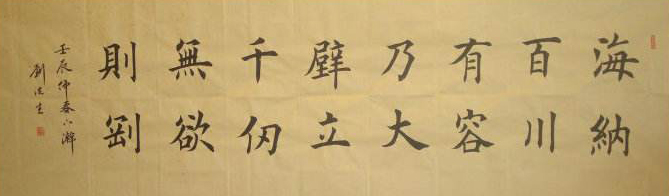 海納
百川
有容
乃大
壁立
千仞
無欲
則剛
壬辰仲春下澣
劉生